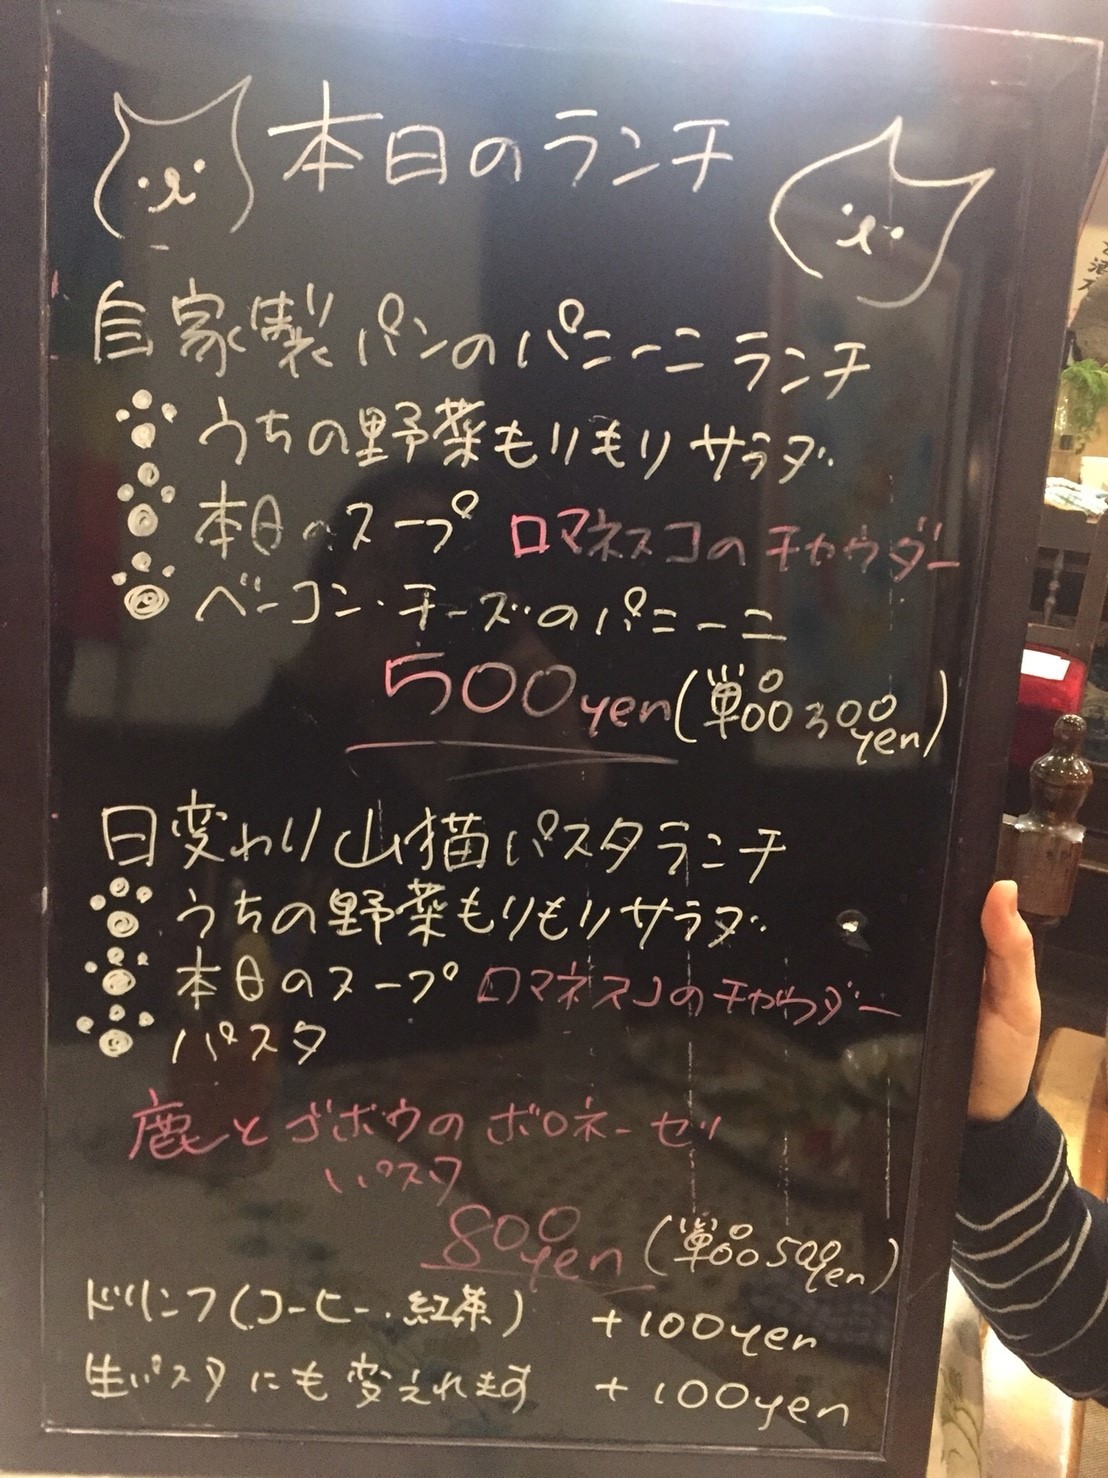 本日のランチ
自家製パンのパニーニランチ
うちの野菜もりもりサラダ
本日のスープ ロマネスコのチャウダー
ベーコン・チーズのパニーニ
500yen(単品300yen)
日変わり山猫パスタランチ
うちの野菜もりもりサラダ
本日のスープ ロマネスコのチャウダー
パスタ
鹿とゴボウのボロネーゼ
パスタ
800yen(単品500yen)
ドリンク(コーヒー・紅茶) +100yen
生パスタにも変えれます +100yen